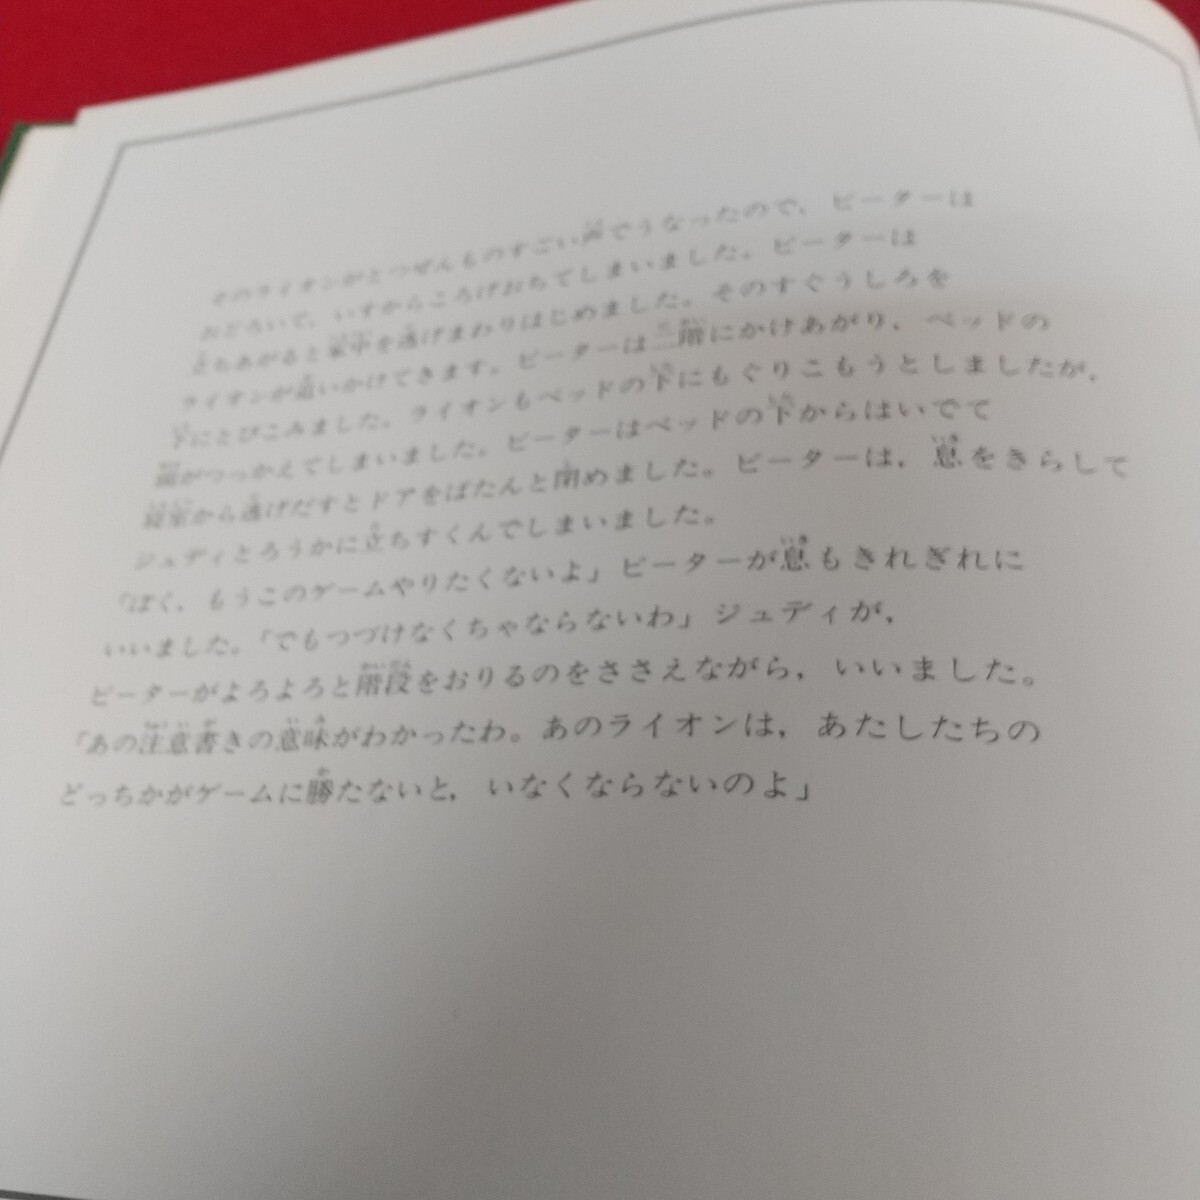 そのライオンがとつぜんものすごい声でうなったので，ピーターは
おどろいて，いすからころげおちてしまいました。ピーターは
立ちあがると家中を逃げまわりはじめました。そのすぐうしろを
ライオンが追いかけてきます。ピーターは二階にかけあがり，ベッドの
下にとびこみました。ライオンもベッドの下にもぐりこもうとしましたが，
頭がつっかえてしまいました。ピーターはベッドの下からはいでて
寝室から逃げだすとドアをばたんと閉めました。ピーターは，息をきらして
ジュディとろうかに立ちすくんでしまいました。
「ぼく，もうこのゲームやりたくないよ」ピーターが息もきれぎれに
いいました。「でもつづけなくちゃならないわ」ジュディが，
ピーターがよろよろと階段をおりるのをささえながら，いいました。
「あの注意書きの意味がわかったわ。あのライオンは，あたしたちの
どっちかがゲームに勝たないと，いなくならないのよ」